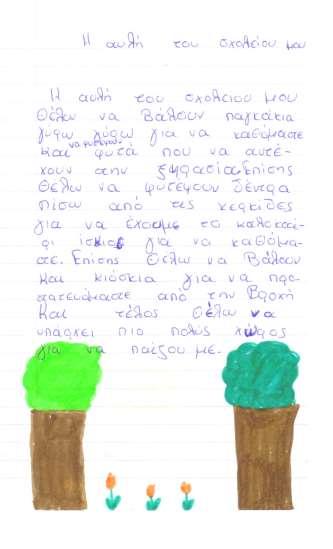 Η αυλή του σχολείου μου
Η αυλή του σχολειου μου
Θέλω να βάλουν παγκάκια
γύρω γύρω για να καθόμαστε
και να φυτέψουν φυτά που να αντέ-
χουν στην ξηρασία. Επίσης
Θέλω να φυτέψουν δέντρα
πίσω από τις κερκίδες
για να έχουμε το καλοκαί-
ρι ίσκιο για να καθόμα-
στε. Επίσης Θέλω να βάλουν
και κιόσκια για να προ-
στατευόμαστε από την βροχή
και τέλος Θέλω να
υπάρχει πιο πολύς χώρος
για να παίζουμε.